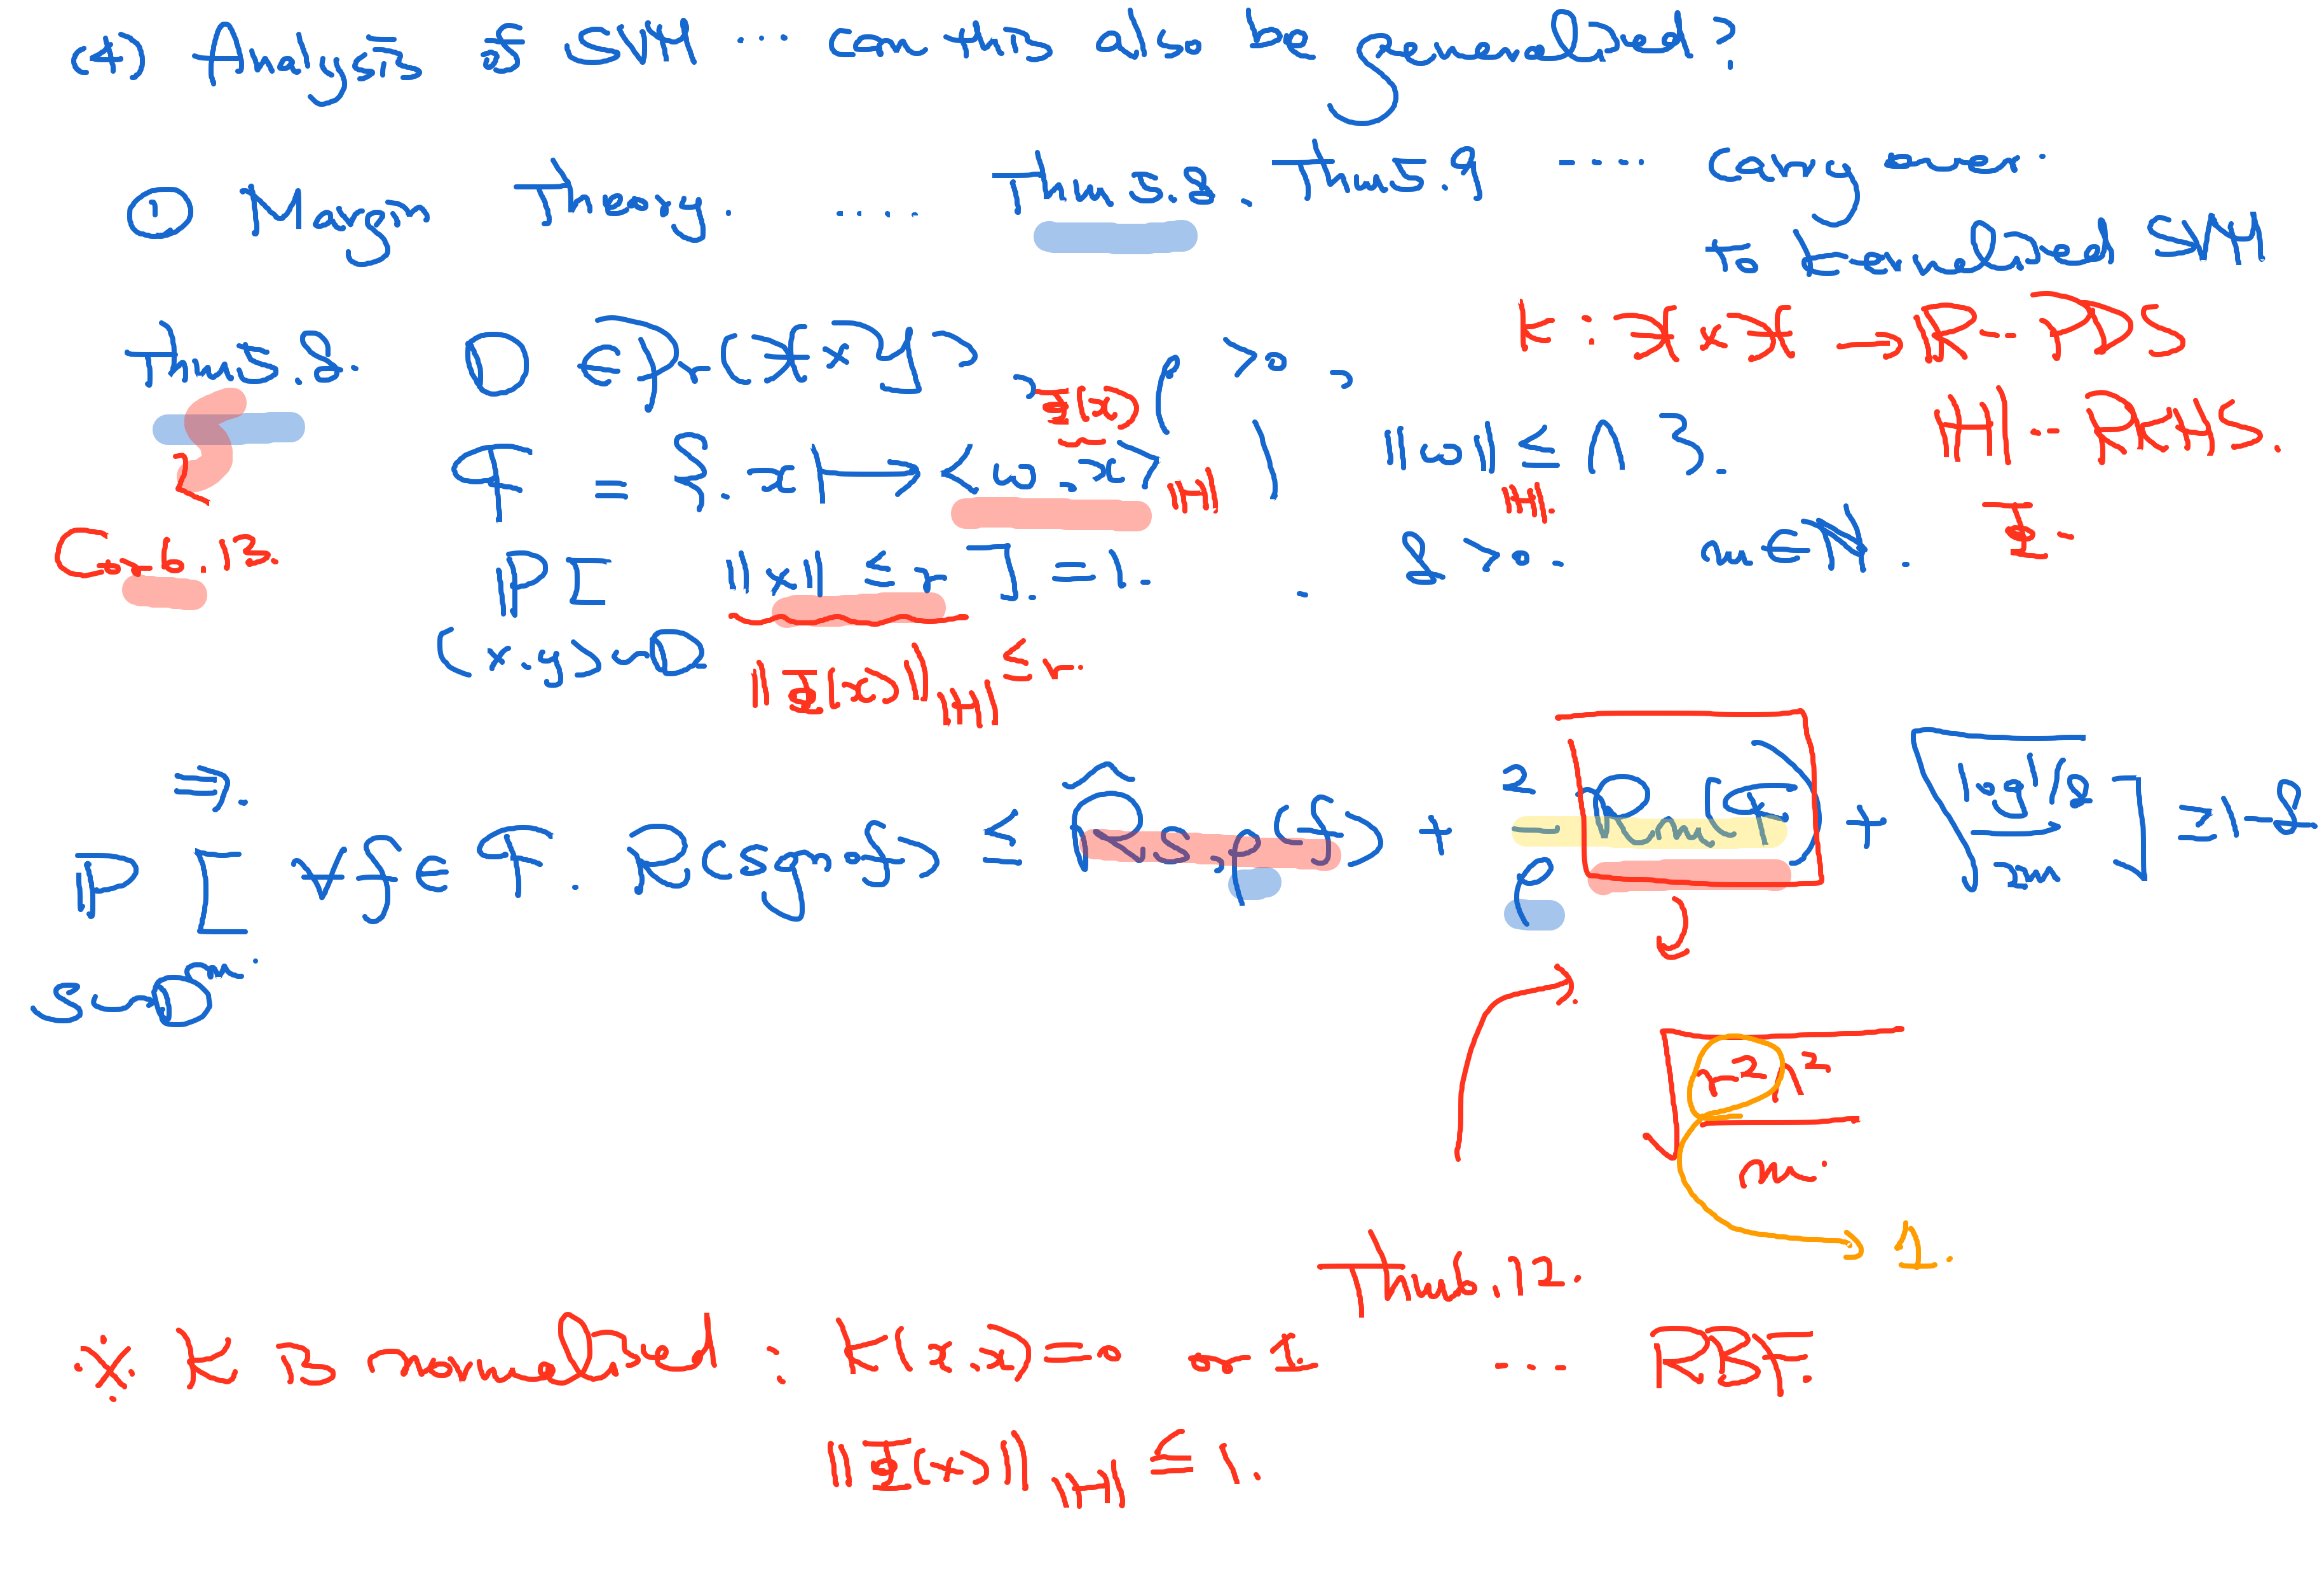 4) Analysis of SVM ... can this also be generalized?
① Margin Theory. .... Thm 5.8. Thm 5.9 .... Carry over
to kernelized SVM
K : X × X → R -- PDS
Thm 5.8. D ∈ P(X × Y), ρ > 0,
Φ(x)
H -- RKHS.
F = { x ↦ <w, x>_H | ||w||_H ≤ Λ }.
Φ.
Cor 6.13.
P[ ||x|| ≤ r ] = 1. δ > 0. m ∈ N.
(x,y)~D
||Φ(x)||_H ≤ r.
⇒
P [ ∀g ∈ F. R(sgn∘g) ≤ R̂_{S,ρ}(g) + 2/ρ R_m(F) + √(log 1/δ / 2m) ] ≥ 1-δ
S~D^m
√(r²Λ² / m)
1.
Thm 6.12.
※ K is normalized : K(x,x) = 0 or 1. .... RBF.
||Φ(x)||_H ≤ 1.